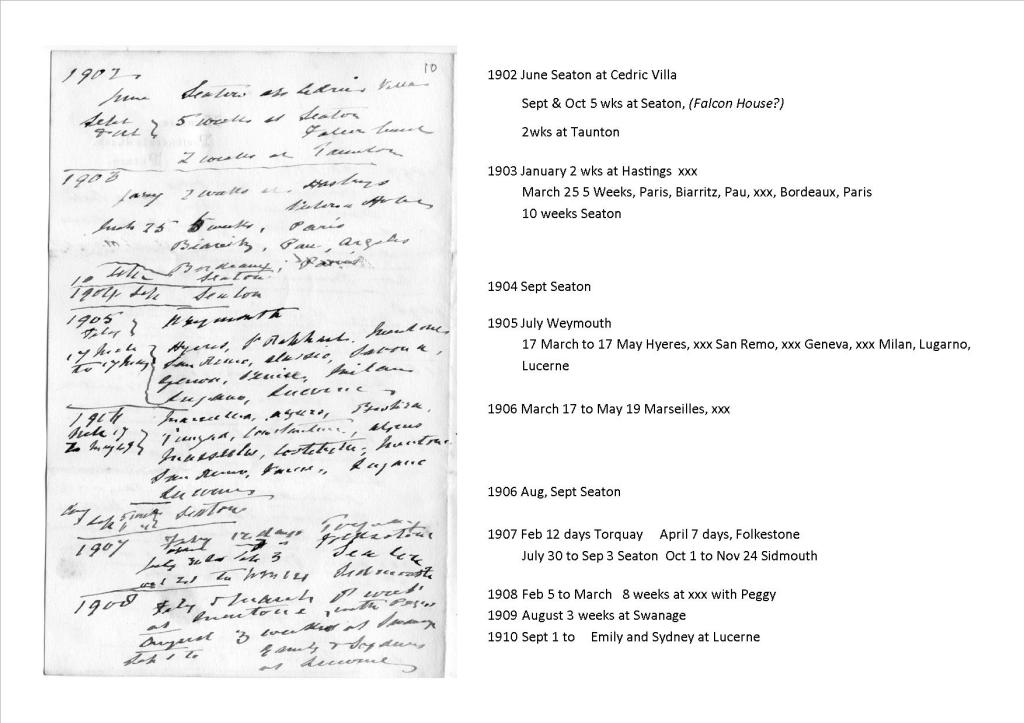 10
1902
June Seaton at Cedric Villa
Sept & Oct } 5 weeks at Seaton
Falcon
2 weeks at Taunton
1903
Jany 2 weeks at Hastings
Victoria Hotel
March 25 5 weeks, Paris
Biarritz, Pau, Argeles
Bordeaux, Paris
10 Seaton
1904 Sept Seaton
1905
Weymouth
17 March to 17 May { Hyeres, St Raphael, Mentone
San Remo, Alassio, Savona,
Genoa, Venice, Milan
Lugano, Lucerne
1906
Mch 17 to May 19 } Marseilles, Algiers, Biskra,
Timgad, Constantine, Algiers
Marseilles, Mentone
San Remo, Lugano
Lucerne
Seaton
1907 Feby 12 days Torquay
7 Folkestone
July 30 to Sep 3 Seaton
Oct 1st to Nov 24 Sidmouth
1908 Feby 5 March 8 weeks
at Mentone with Peggy
August 3 weeks at Swanage
Sep 1 to Emily & Sydney
at Lucerne
1902 June Seaton at Cedric Villa
Sept & Oct 5 wks at Seaton, (Falcon House?)
2wks at Taunton
1903 January 2 wks at Hastings xxx
March 25 5 Weeks, Paris, Biarritz, Pau, xxx, Bordeaux, Paris
10 weeks Seaton
1904 Sept Seaton
1905 July Weymouth
17 March to 17 May Hyeres, xxx San Remo, xxx Geneva, xxx Milan, Lugarno,
Lucerne
1906 March 17 to May 19 Marseilles, xxx
1906 Aug, Sept Seaton
1907 Feb 12 days Torquay April 7 days, Folkestone
July 30 to Sep 3 Seaton Oct 1 to Nov 24 Sidmouth
1908 Feb 5 to March 8 weeks at xxx with Peggy
1909 August 3 weeks at Swanage
1910 Sept 1 to Emily and Sydney at Lucerne